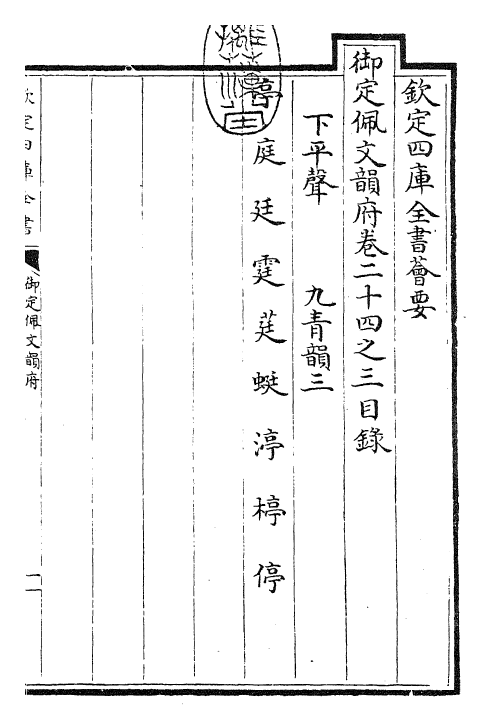 欽定四庫全書薈要
御定佩文韻府卷二十四之三目錄
下平聲　九青韻三
亭庭廷霆莛蜓渟楟停
欽定四庫全書
御定佩文韻府